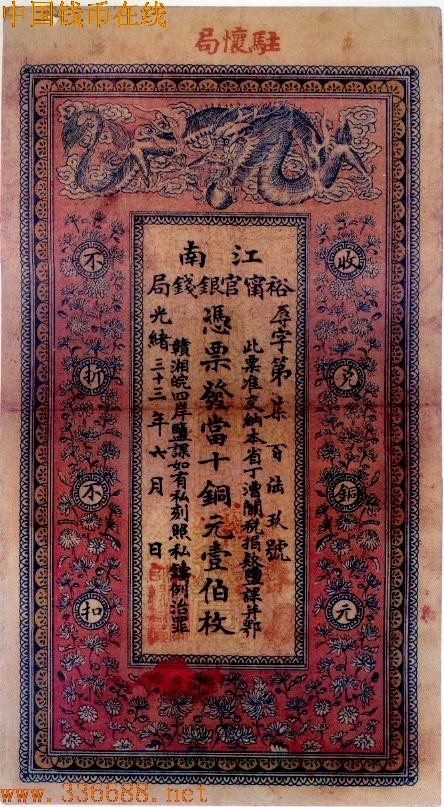 中国钱币在线
駐懷局
江南
裕甯官銀錢局
收兌銅元
字第柒百陸玖號
此票准完納本省丁漕關稅捐款鹽課并鄂
憑票發當十銅元壹伯枚
贛湘皖四岸鹽課如有私刻照私鑄例治罪
光緒三十三年六月 日
不折不扣
www.336688.net